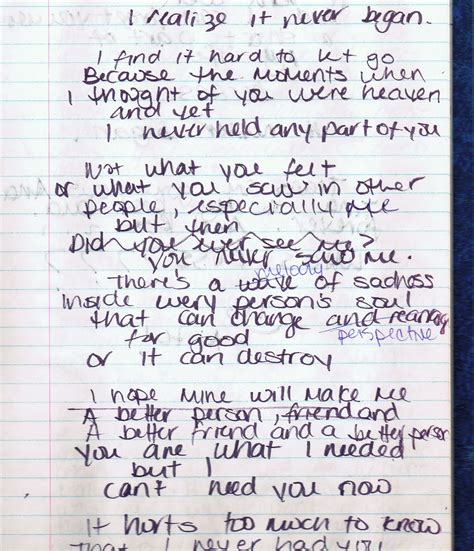 I realize it never began.
I find it hard to let go
Because the moments when
I thought of you were heaven
and yet
I never held any part of you
Not what you felt
or what you saw in other
people, especially me
but then
Did you ever see me?
you never saw me.
melody
There's a wave of sadness
Inside every person's soul
that can change and rearrang
for good perspective
or it can destroy
I hope mine will make me
A better person, friend and
A better friend and a better person
you are what I needed
but I
can't need you now
It hurts too much to know
that I never had you